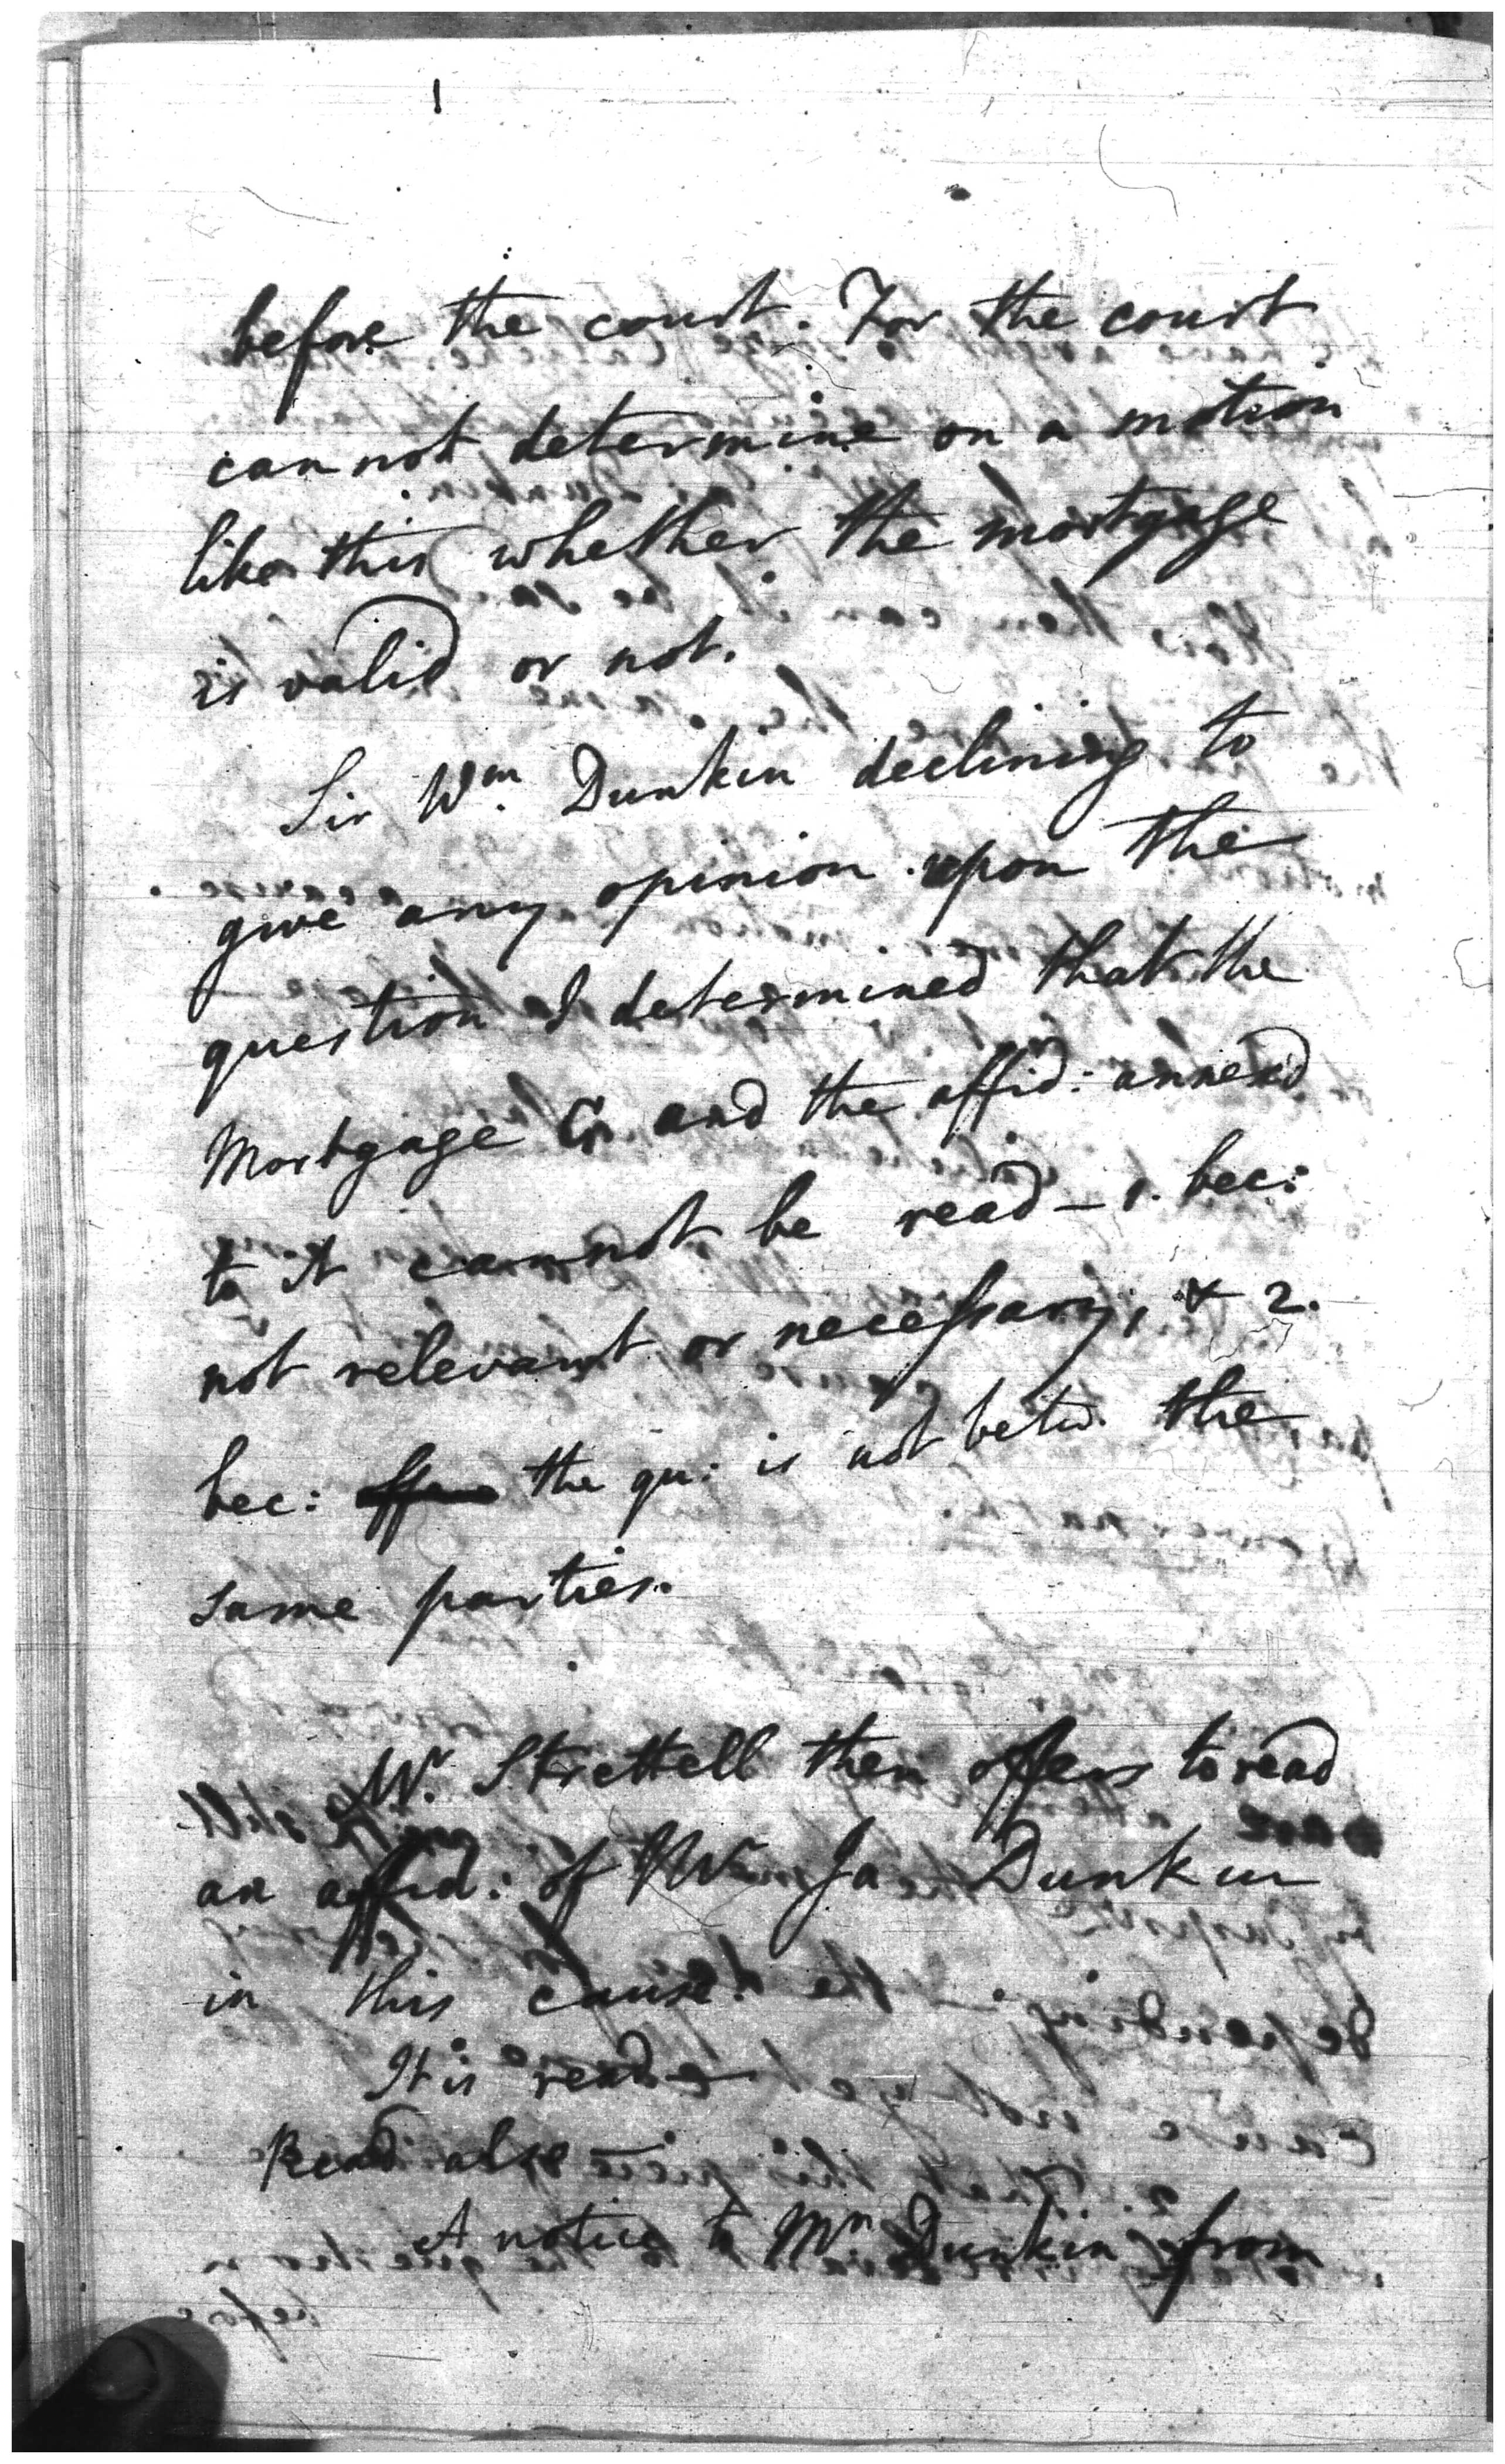 before the court. For the court
cannot determine on a motion
like this whether the mortgage
is valid or not.
Sir Wm. Dunkin declining to
give any opinion upon the
question I determined that the
Mortgage and the affid: annexd
to it cannot be read – 1. bec:
not relevant or necessary, & 2.
bec: the qu: is not betw. the
same parties.
Mr. Strettell then offers to read
an affid: of Mr Ja Dunkin
in this cause.
It is read
Read also –
A notice to Mr Dunkin from